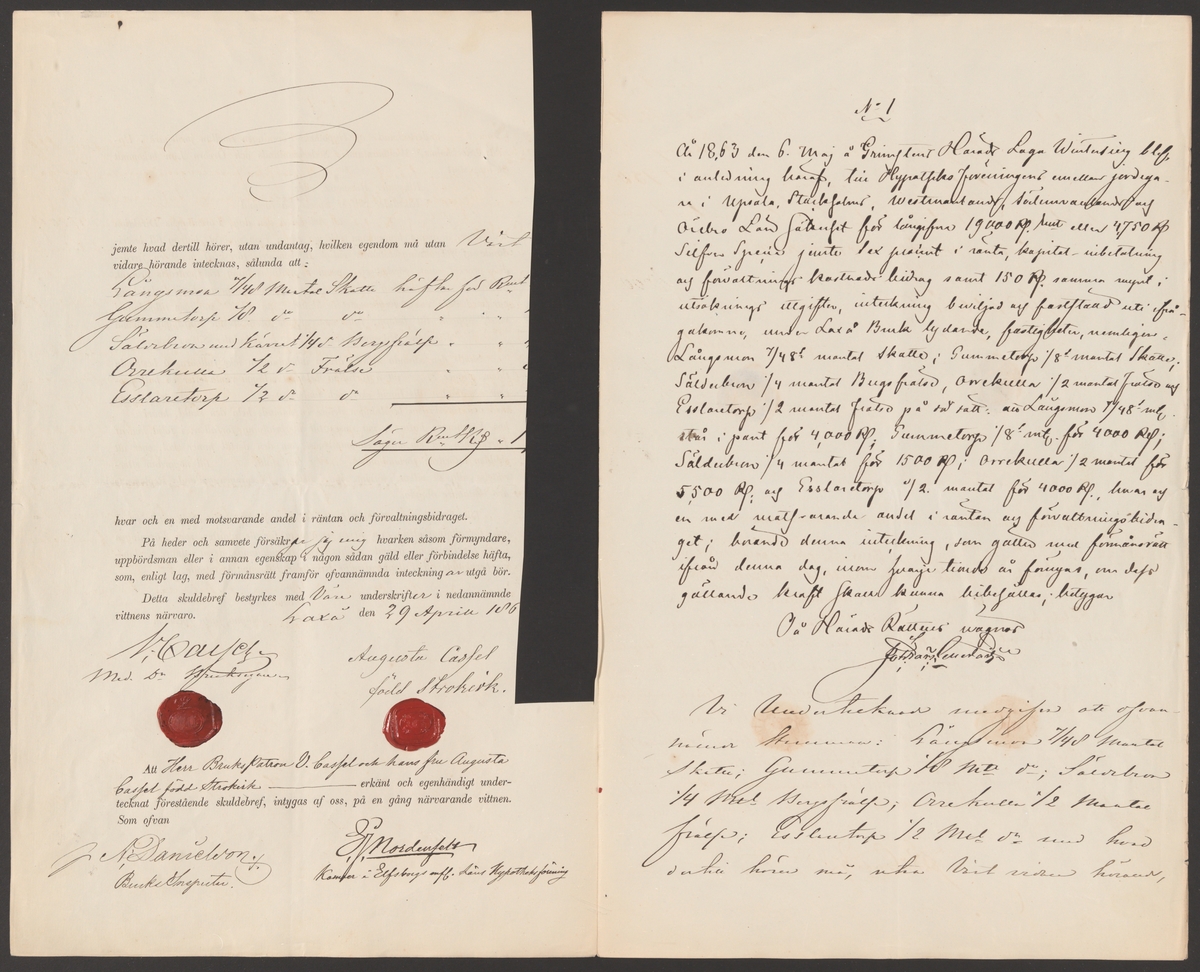 jemte hvad dertill hörer, utan undantag, hvilken egendom må utan Vårt
vidare hörande intecknas, sålunda att:
Långsmon 7/48 Mantal Skatte häftar för Rmt
Gummetorp 1/8 do do " "
Sälvebron med Kärret 1/4 d. Bergsfrälse " "
Orrekulla 1/2 do Frälse " "
Esslaretorp 1/2 do do " "
Säger Rmt Rdr " 1
hvar och en med motsvarande andel i räntan och förvaltningsbidraget.
På heder och samvete försäkrar jag mig hvarken såsom förmyndare,
uppbördsman eller i annan egenskap i någon sådan gäld eller förbindelse häfta,
som, enligt lag, med förmånsrätt framför ofvannämnda inteckningar utgå bör.
Detta skuldebref bestyrkes med Våra underskrifter i nedannämnde
vittnens närvaro. Laxå den 29 Aprill 186
V. Cassel
Augusta Cassel
född Strokirk.
Att Herr BruksPatron V. Cassel och hans fru Augusta
Cassel född Strokirk erkänt och egenhändigt under-
tecknat förestående skuldebref, intygas af oss, på en gång närvarande vittnen.
Som ofvan
N. Danielson.
Bruks Inspector.
Nordenfelt
Kamrer i Elfsborgs m.fl. Läns Hypotheksförening
No 1
År 1863 den 6. Maj å Grimstens Härads Laga Winterting blef,
i anledning häraf, till Hypotheks föreningens emellan jordega-
re i Upsala, Stockholms, Westmanlands, Södermanlands och
Örebro Län säkerhet för långifna 19000 Rdr Rmt eller 4750 Rdr
Silfver Specie jemte sex procent i ränta, kapital-inbetalning
och förvaltnings kostnads bidrag samt 150 Rdr samma mynt i
utsöknings utgifter, inteckning beviljad och fastställd uti ifrå-
gakomne, under Laxå Bruk lydande, fastigheter, nemligen:
Långsmon 7/48s mantal skatte; Gummetorp 1/8s mantal Skatte;
Sälvebron 1/4 mantal Bergsfrälse, Orrekulla 1/2 mantal frälse och
Esslaretorp 1/2 mantal frälse på så sätt: att Långsmon 7/48s mtl.
står i pant för 4,000 Rdr; Gummetorp 1/8s mtl. för 4000 Rdr;
Sälvebron 1/4 mantal för 1500 Rdr; Orrekulla 1/2 mantal för
5,500 Rdr; och Esslaretorp 1/2. mantal för 4000 Rdr, hvar och
en med motsvarande andel i räntan och förvaltningsbidra-
get; börande denna inteckning, som gäller med förmånsrätt
ifrån denna dag, inom hvarje tionde år förnyas, om dess
gällande kraft skall kunna bibehållas; betygar
På Härads Rättens vägnar
Vi Undertecknade medgifva att ofvan-
nämnde Hemman: Långsmon 7/48 Mantal
Skatte; Gummetorp 1/8 Mtl do; Sälvebron
1/4 Mtl Bergsfrälse; Orrekulla 1/2 Mantal
frälse; Esslaretorp 1/2 Mtl do med hvad
dertill hörer må, utan Vårt vidare hörande,